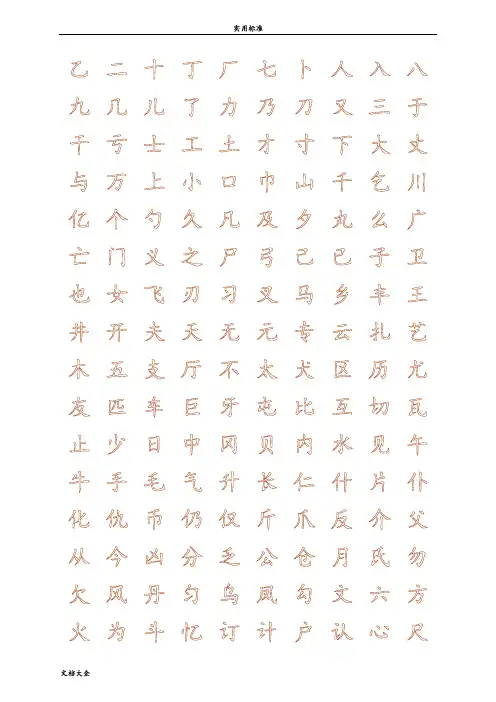 实用标准
乙 二 十 丁 厂 七 卜 人 入 八
九 几 儿 了 力 乃 刀 又 三 于
干 亏 士 工 土 才 寸 下 大 丈
与 万 上 小 口 巾 山 千 乞 川
亿 个 勺 久 凡 及 夕 丸 么 广
亡 门 义 之 尸 弓 己 已 子 卫
也 女 飞 刃 习 叉 马 乡 丰 王
井 开 夫 天 无 元 专 云 扎 艺
木 五 支 厅 不 太 犬 区 历 尤
友 匹 车 巨 牙 屯 比 互 切 瓦
止 少 日 中 冈 贝 内 水 见 午
牛 手 毛 气 升 长 仁 什 片 仆
化 仇 币 仍 仅 斤 爪 反 介 父
从 今 凶 分 乏 公 仓 月 氏 勿
欠 风 丹 匀 乌 凤 勾 文 六 方
火 为 斗 忆 订 计 户 认 心 尺
文档大全